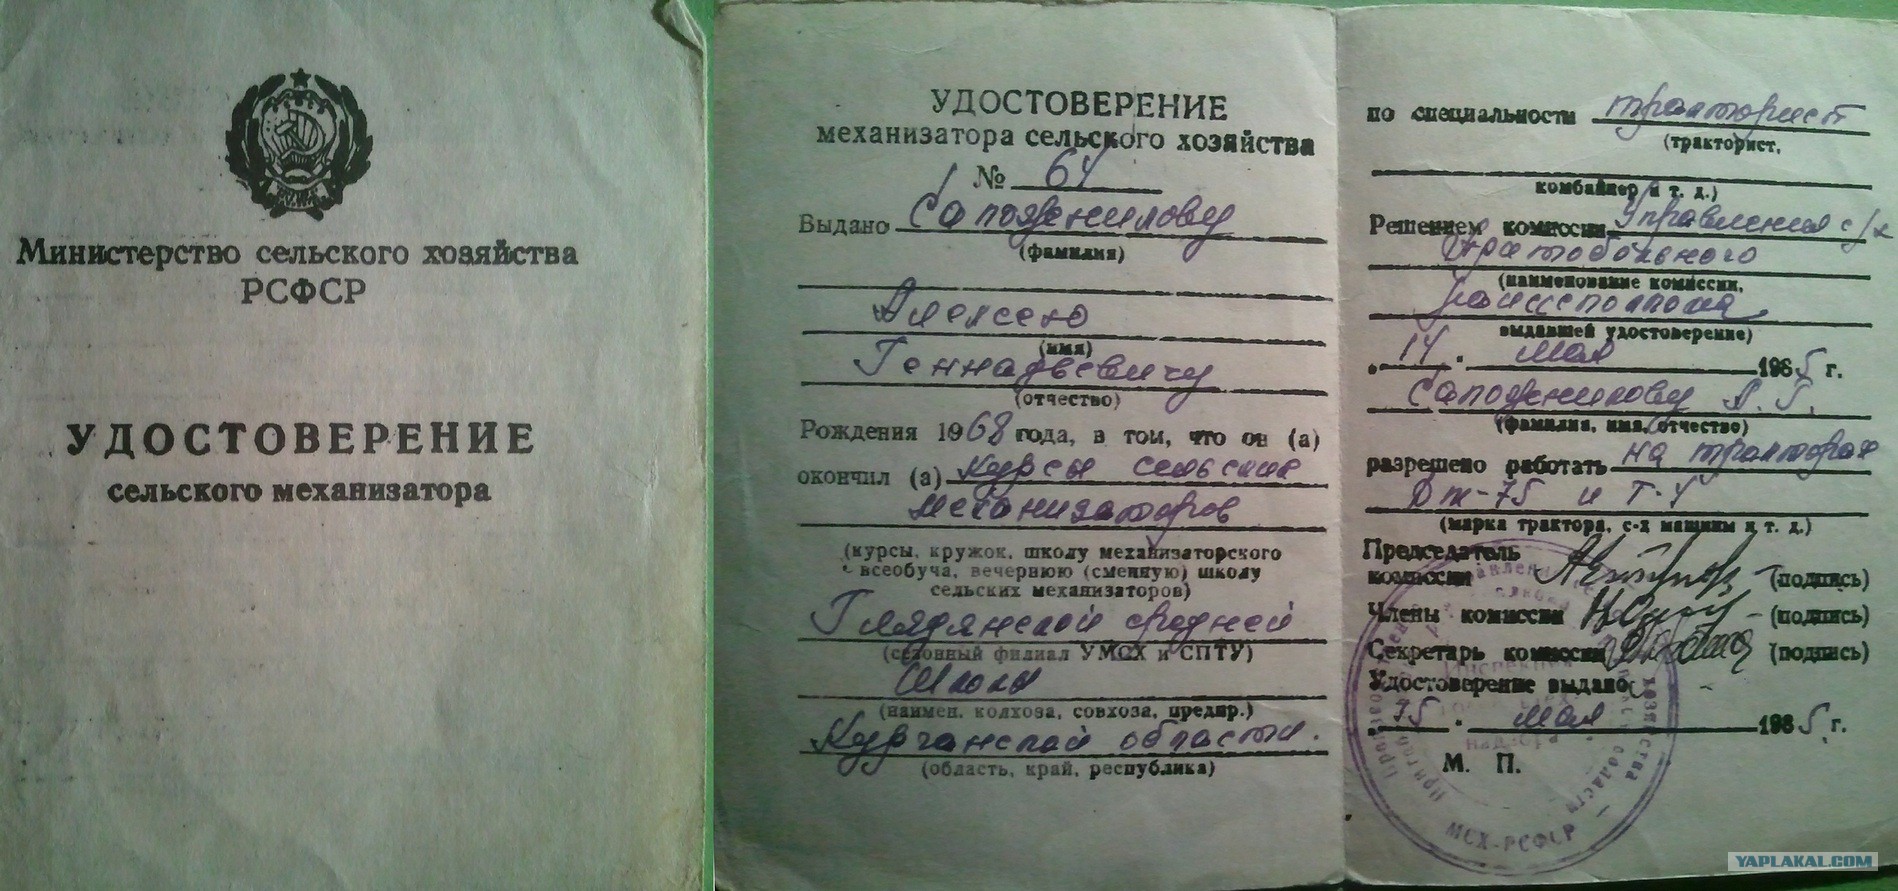 Министерство сельского хозяйства
РСФСР
УДОСТОВЕРЕНИЕ
сельского механизатора
УДОСТОВЕРЕНИЕ
механизатора сельского хозяйства
№ 64
Выдано Сапожникову
(фамилия)
Алексею
(имя)
Геннадьевичу
(отчество)
Рождения 1968 года, в том, что он (а)
окончил (а) курсы сельских
механизаторов
(курсы, кружок, школу механизаторского
всеобуча, вечернюю (сменную) школу
сельских механизаторов)
Глядянской средней
(сезонный филиал УМСХ и СПТУ)
школы
(наимен. колхоза, совхоза, предпр.)
Курганской области.
(область, край, республика)
по специальности тракторист
(тракторист,
комбайнер и т. д.)
Решением комиссии Управления с/х
Притобольного
(наименование комиссии,
райисполкома
выдавшей удостоверение)
14 мая 1985 г.
Сапожникову А. Г.
(фамилия, имя, отчество)
разрешено работать на тракторах
Дт-75 и Т-4
(марка трактора, с-х машины и т. д.)
Председатель
комиссии (подпись)
Члены комиссии (подпись)
Секретарь комиссии (подпись)
Удостоверение выдано
мая 1985 г.
М. П.
МСХ-РСФСР
YAPLAKAL.COM